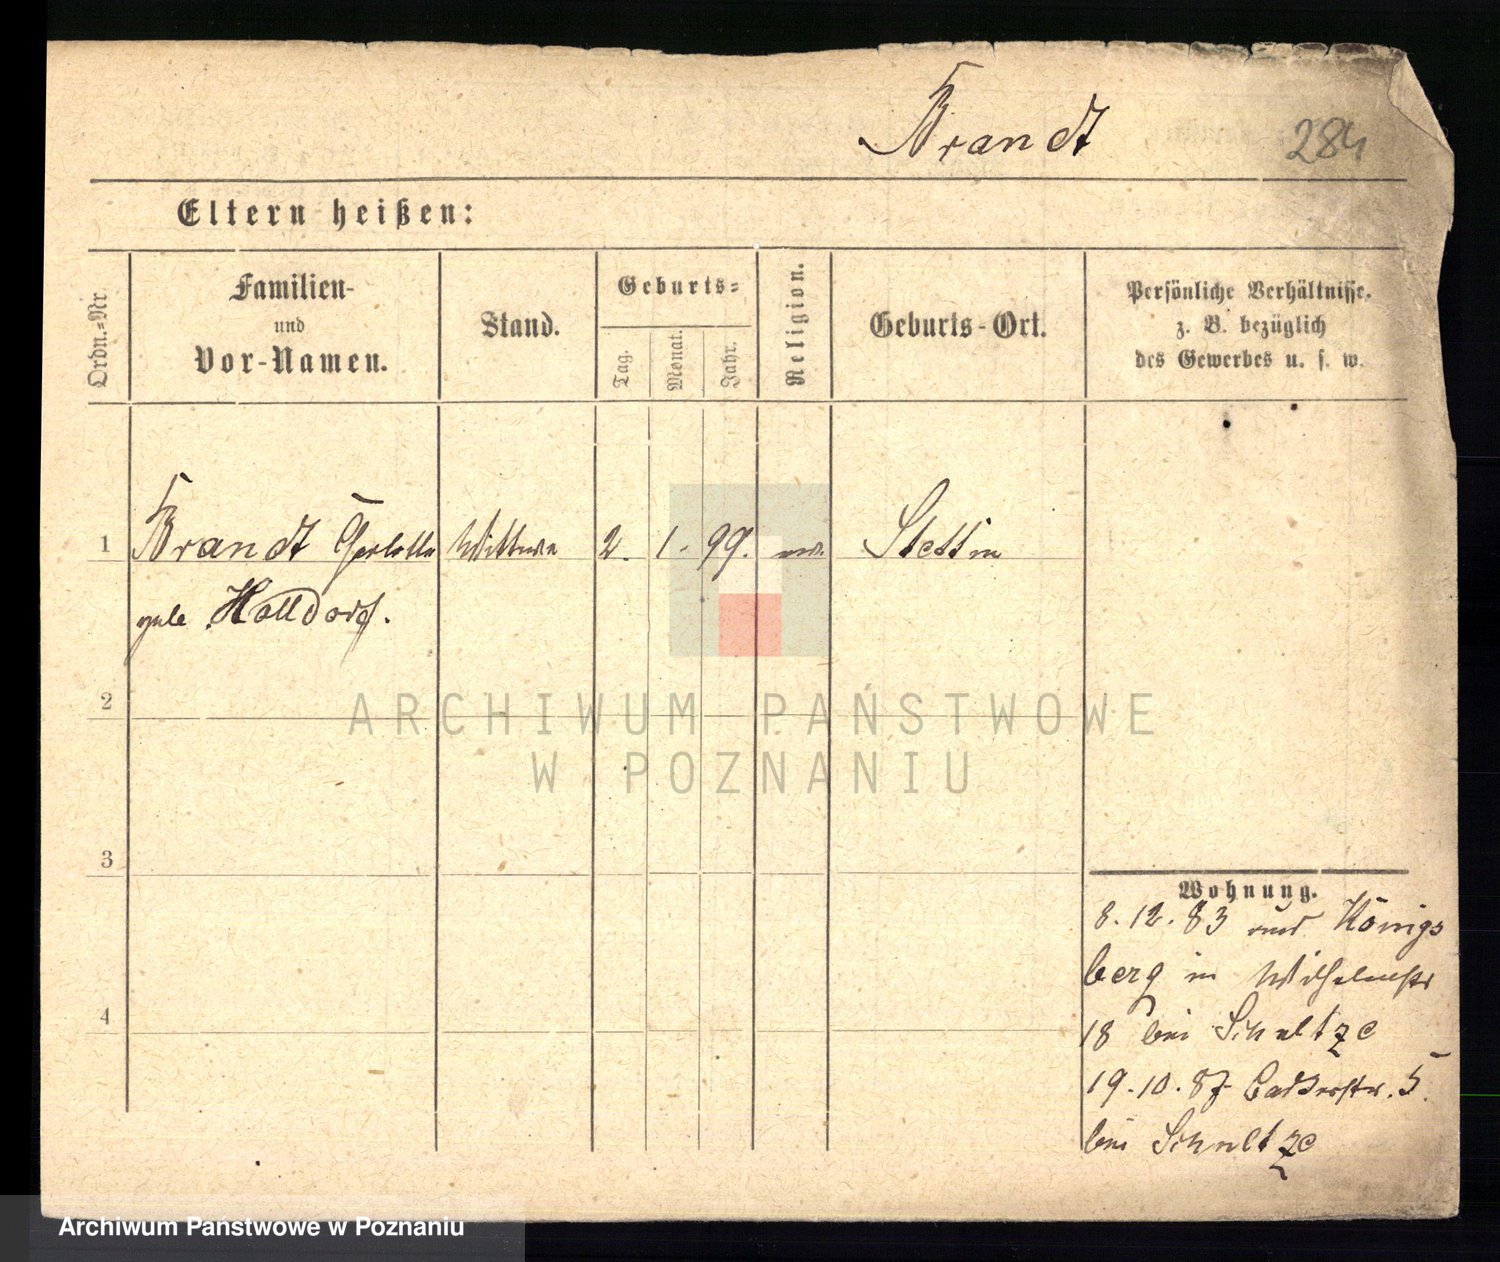 Brandt
284
Eltern heißen:
Ordn.-Nr
Familien-
und
Vor-Namen.
Stand.
Geburts-
Tag.
Monat.
Jahr.
Religion.
Geburts-Ort.
Persönliche Verhältnisse.
z. B. bezüglich
des Gewerbes u. s. w.
1 Brandt Wittwe 2. 1. 99. Stettin
Holldorf.
2
3
4
Wohnung.
8.12.83 Königs
berg in Wilhelmstr
18 bei Schultze
19.10.87 5.
bei Schultze
ARCHIWUM PAŃSTWOWE
W POZNANIU
Archiwum Państwowe w Poznaniu